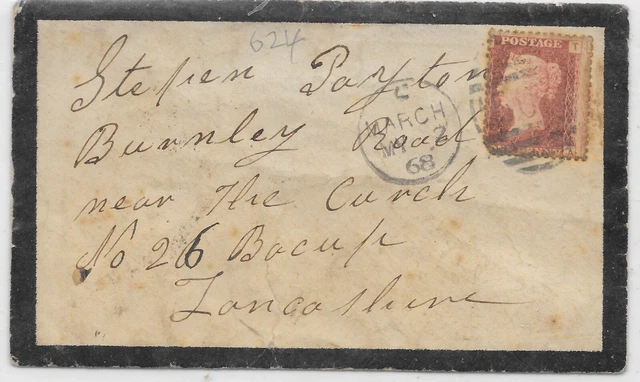 624
Stephen Payton
Burnley Road
near The Curch
No 26 Bacup
Lancashire
POSTAGE
C
MARCH
MY 2
68